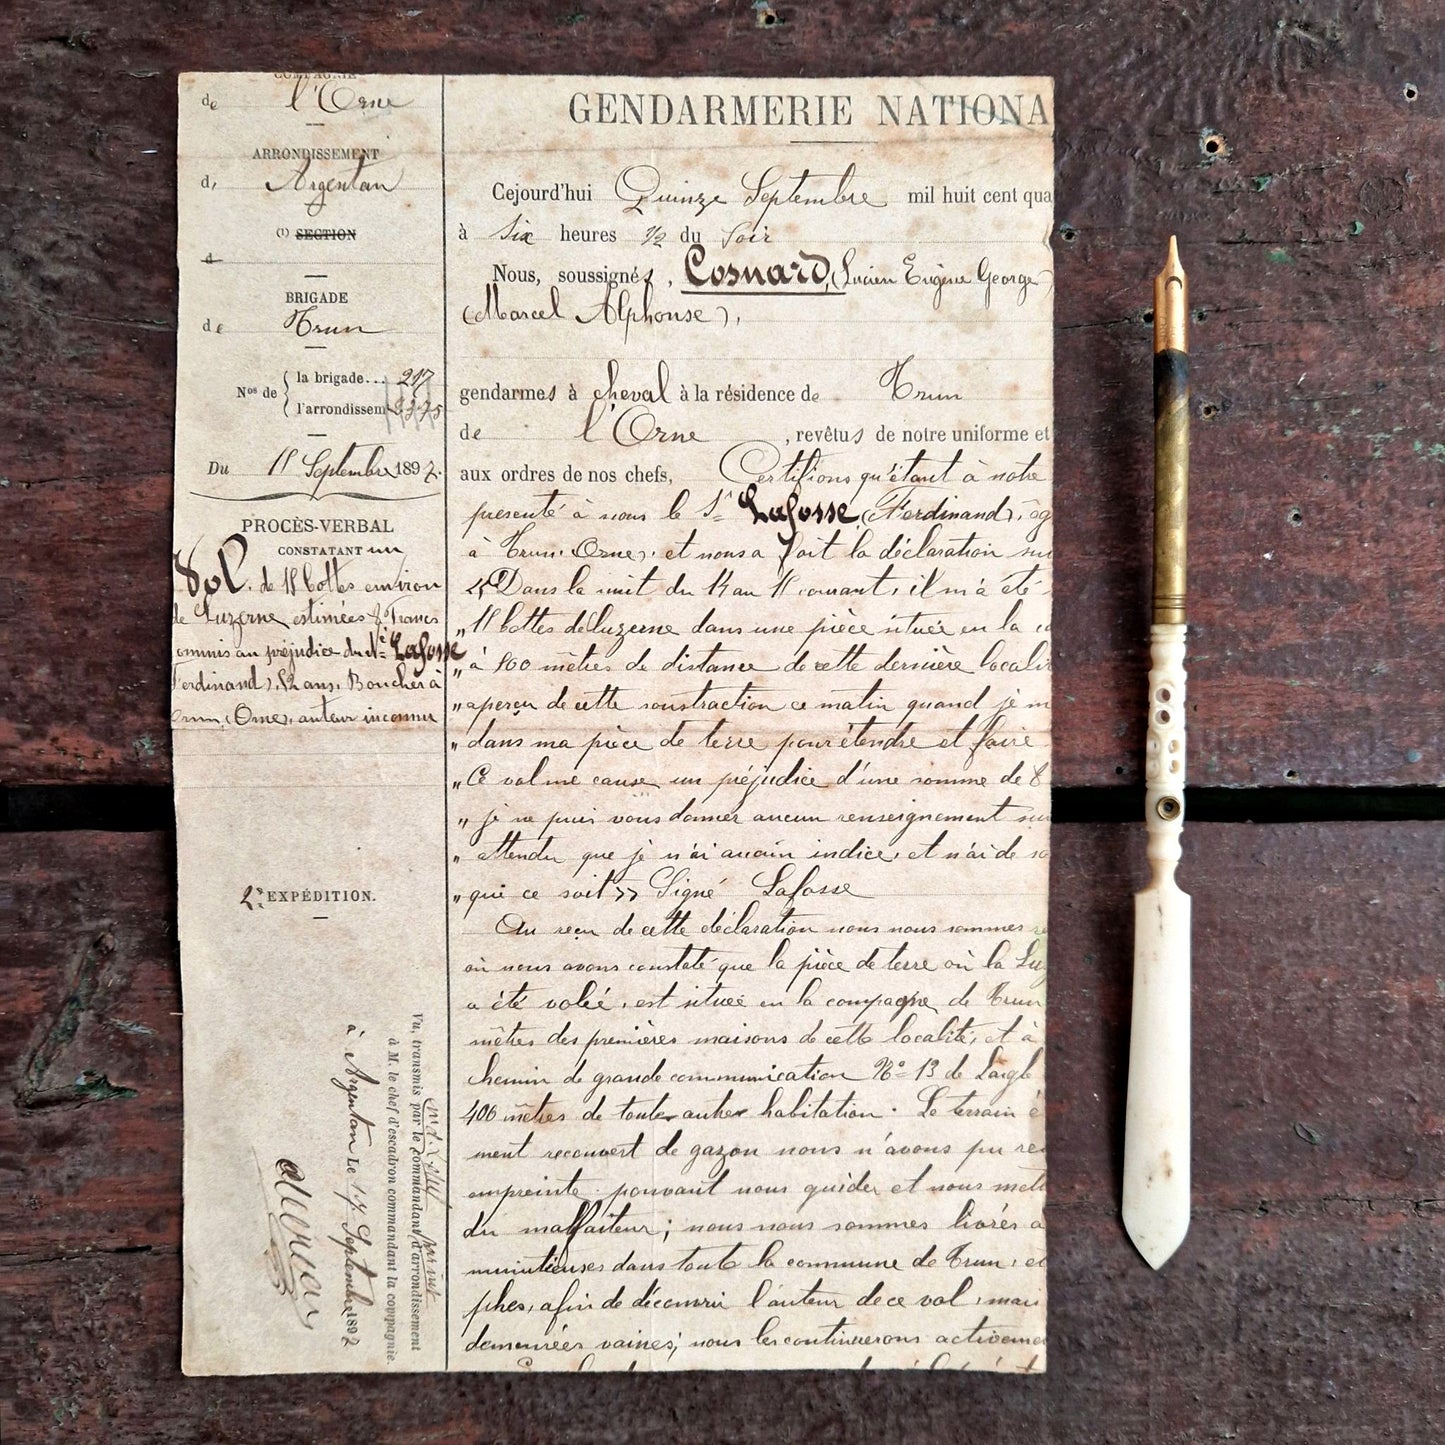 COMPAGNIE
de l'Orne
ARRONDISSEMENT
d' Argentan
(1) SECTION
d
BRIGADE
de Trun
Nos de la brigade... 217
l'arrondissem
Du 15 Septembre 1892.
PROCÈS-VERBAL
CONSTATANT un
Vol. de 15 bottes environ
de Luzerne estimées 8 Francs
ommis au préjudice du Né Lafosse
Ferdinand), 52 ans, Boucher à
Trun, (Orne), auteur inconnu
2e EXPÉDITION.
Vu, transmis par le commandant d'arrondissement
à M. le chef d'escadron commandant la compagnie.
à Argentan Le 17 Septembre 1892
GENDARMERIE NATIONA
Cejourd'hui Quinze Septembre mil huit cent qua
à six heures 1/2 du soir
Nous, soussignés, Cosnard, (Lucien Eugène George
(Marcel Alphonse),
gendarmes à cheval à la résidence de Trun
de l'Orne, revêtus de notre uniforme et
aux ordres de nos chefs, Certifions qu'étant à notre
presenté à nous le Sr Lafosse (Ferdinand), âg
à Trun (Orne), et nous a fait la déclaration sui
« Dans la nuit du 14 au 15 courant, il m'a été
" 15 bottes de luzerne dans une pièce située en la co
" à 500 mètres de distance de cette dernière locali
" aperçu de cette soustraction ce matin quand je m
" dans ma pièce de terre pour étendre et faire
" Ce vol me cause un préjudice d'une somme de 8
" je ne puis vous donner aucun renseignement sur
" attendu que je n'ai aucun indice, et n'ai de so
" qui ce soit » Signé Lafosse
Au reçu de cette déclaration nous nous sommes re
où nous avons constaté que la pièce de terre où la Luz
a été volée, est située en la campagne de Trun
mètres des premières maisons de cette localité, et à
chemin de grande communication No 13 de Laigle
400 mètres de toute autre habitation. Le terrain é
ment recouvert de gazon nous n'avons pu re
empreinte pouvant nous guider et nous mett
du malfaiteur; nous nous sommes livrés a
minutieuses dans toute la commune de Trun, et
phes, afin de découvrir l'auteur de ce vol, mais
demeurées vaines; nous les continuerons activeme